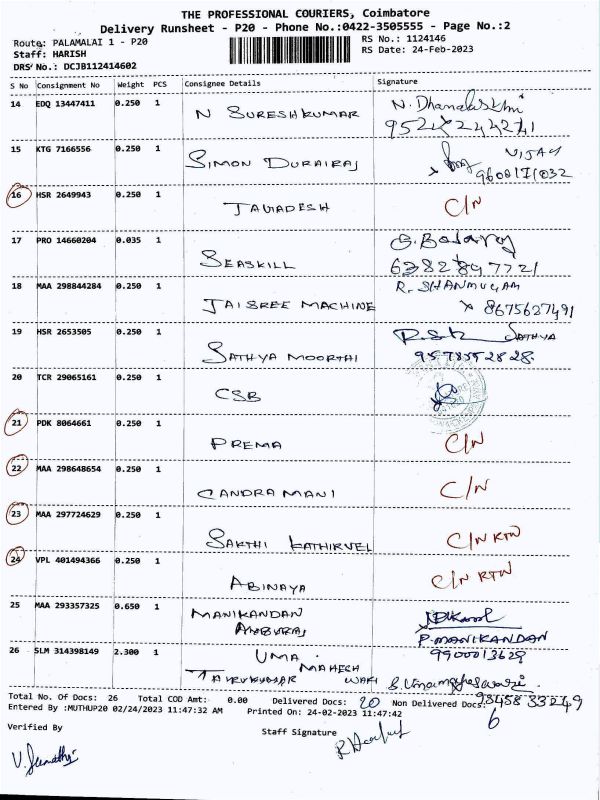 THE PROFESSIONAL COURIERS, Coimbatore
Delivery Runsheet - P20 - Phone No.:0422-3505555 - Page No.:2
Route: PALAMALAI 1 - P20
RS No.: 1124146
Staff: HARISH
RS Date: 24-Feb-2023
DRS No.: DCJB112414602
S No Consignment No Weight PCS Consignee Details Signature
14 EDQ 13447411 0.250 1 N SURESHKUMAR N. Dhanalakshmi
15 KTG 7166556 0.250 1 SIMON DURAIRAJ VIJAY
9600171032
16 HSR 2649943 0.250 1 C/N
17 PRO 14660204 0.035 1 SEASKILL
6382897721
18 MAA 298844284 0.250 1 JAISREE MACHINE R. SHANMUGAM
8675627491
19 HSR 2653505 0.250 1 SATHYA MOORTHI SATHYA
9578552828
20 TCR 29065161 0.250 1 CSB
21 PDK 8064661 0.250 1 PREMA C/N
22 MAA 298648654 0.250 1 CANDRAMANI C/N
23 MAA 297724629 0.250 1 SAKTHI KATHIRVEL C/N RTN
24 VPL 401494366 0.250 1 ABINAYA C/N RTN
25 MAA 293357325 0.650 1 MANIKANDAN
P. MANIKANDAN
26 SLM 314398149 2.300 1 UMA MAHESH 9900013629
Total No. Of Docs: 26 Total COD Amt: 0.00 Delivered Docs: 20 Non Delivered Docs: 6
Entered By :MUTHUP20 02/24/2023 11:47:32 AM Printed On: 24-02-2023 11:47:42
Verified By
Staff Signature